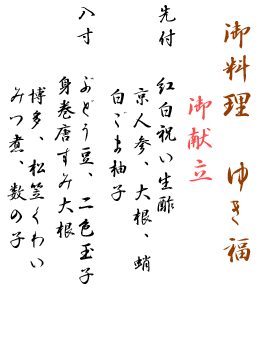 御料理 ゆき福
御献立
先付 紅白祝い生酢
京人参、大根、蛸
白ごま柚子
八寸 ぶどう豆、二色玉子
身巻唐すみ大根
博多、松笠くわい
みつ煮、数の子